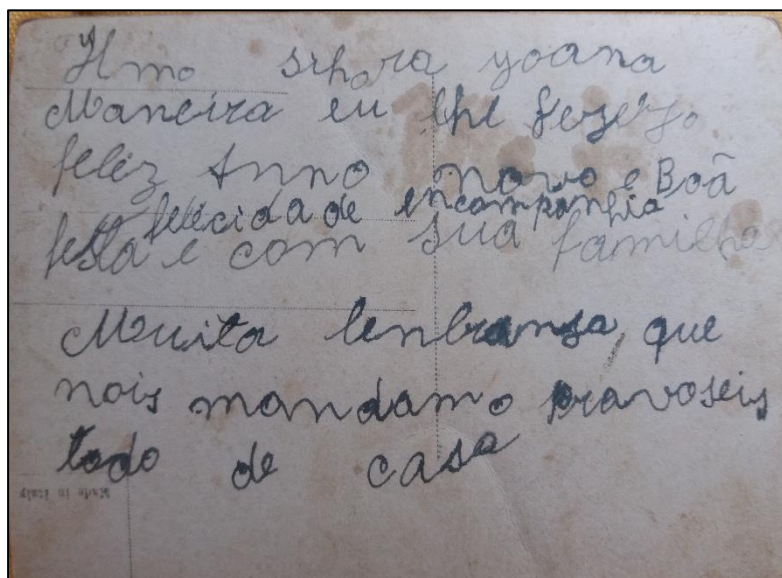 Ilmo srhora yoana
Maneira eu lhe
feliz Anno novo e Boã
felicidade encompanhia
festa e com sua familha
Muita lenbransa, que
nois mandamo pravoseis
todo de casa
Made in Italy